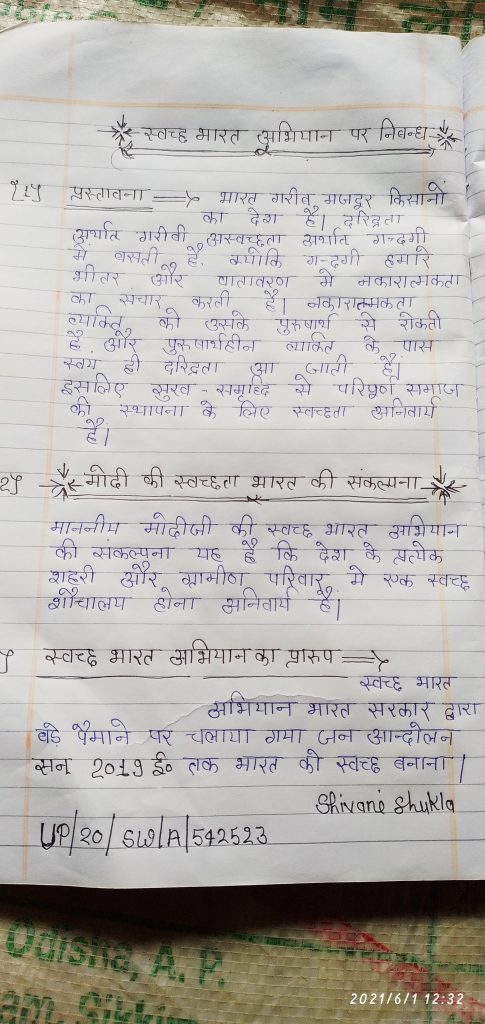 स्वच्छ भारत अभियान पर निवन्ध
प्रस्तावना ⇒ भारत गरीव मजदूर किसानों
का देश है। दरिद्रता
अर्थात गरीवी अस्वच्छता अर्थात गन्दगी
मे वसती है. क्योकि गन्दगी हमारे
भीतर और वातावरण मे नकारात्मकता
का संचार करती है। नकारात्मकता
व्याक्ति को उसके पुरुषार्थ से रोकती
है और पुरुषार्थहीन व्याक्ति के पास
स्वय ही दरिद्रता आ जाती है।
इसलिए सुख-समृध्दि से परिपूर्ण समाज
की स्थापना के लिए स्वच्छता अनिवार्य
है।
मोदी की स्वच्छता भारत की संकल्पना
माननीय मोदीजी की स्वच्छ भारत अभियान
की संकल्पना यह है कि देश के प्रत्येक
शहरी और ग्रामीण परिवार मे एक स्वच्छ
शौचालय होना अनिवार्य है।
स्वच्छ भारत अभियान का प्रारुप ⇒
स्वच्छ भारत
अभियान भारत सरकार द्वारा
वड़े पैमाने पर चलाया गया जन आन्दोलन
सन 2019 ई० तक भारत को स्वच्छ बनाना।
Shivani Shukla
UP/20/SW/A/542523
Odisha, A. P.
am, Sikki
2021/6/1 12:32